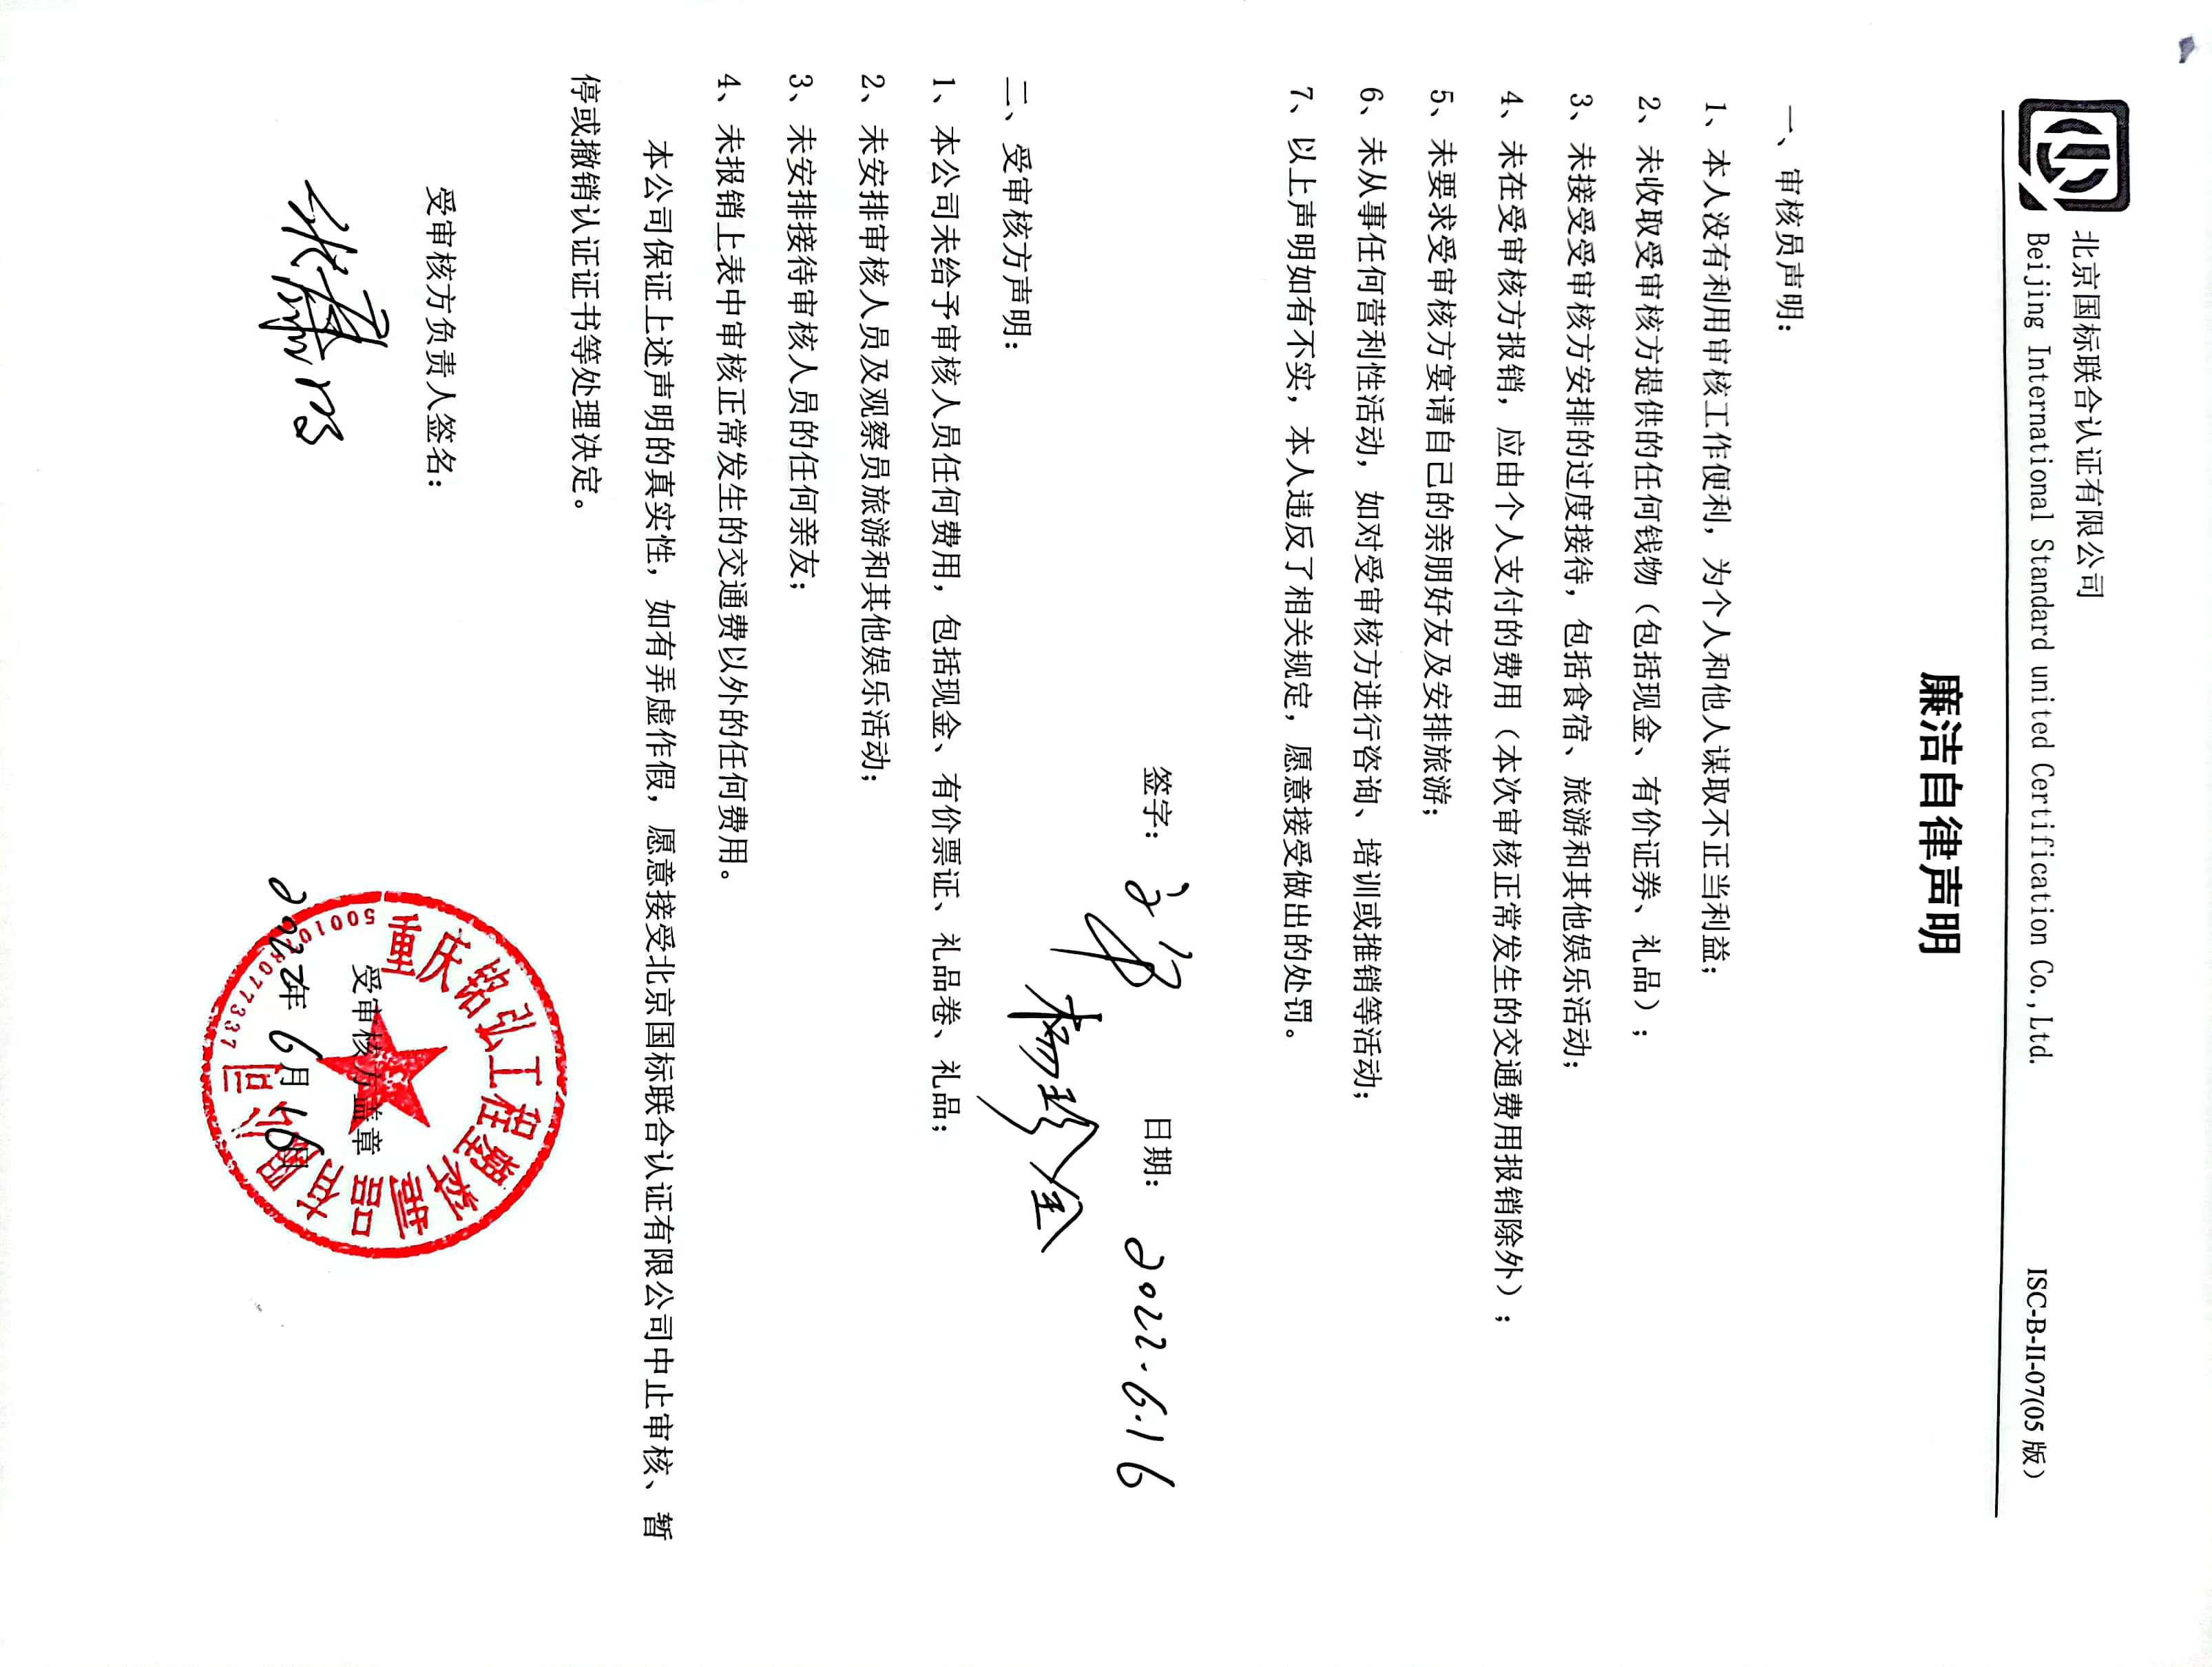 北京国标联合认证有限公司
Beijing International Standard united Certification Co.,Ltd.
ISC-B-II-07(05 版)
廉洁自律声明
一、审核员声明：
1、本人没有利用审核工作便利，为个人和他人谋取不正当利益；
2、未收取受审核方提供的任何钱物（包括现金、有价证券、礼品）；
3、未接受受审核方安排的过度接待，包括食宿、旅游和其他娱乐活动；
4、未在受审核方报销，应由个人支付的费用（本次审核正常发生的交通费用报销除外）；
5、未要求受审核方宴请自己的亲朋好友及安排旅游；
6、未从事任何营利性活动，如对受审核方进行咨询、培训或推销等活动；
7、以上声明如有不实，本人违反了相关规定，愿意接受做出的处罚。
签字： 日期：2022.6.16
杨珍全
二、受审核方声明：
1、本公司未给予审核人员任何费用，包括现金、有价票证、礼品卷、礼品；
2、未安排审核人员及观察员旅游和其他娱乐活动；
3、未安排接待审核人员的任何亲友；
4、未报销上表中审核正常发生的交通费以外的任何费用。
本公司保证上述声明的真实性，如有弄虚作假，愿意接受北京国标联合认证有限公司中止审核、暂
停或撤销认证证书等处理决定。
受审核方负责人签名：
受审核方盖章
2022年6月16日
重庆铭弘工程塑胶制品有限公司
5001078077337